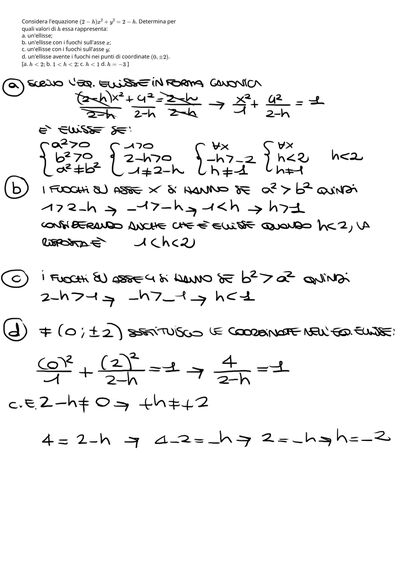 Considera l'equazione (2 − h)x² + y² = 2 − h. Determina per
quali valori di h essa rappresenta:
a. un'ellisse;
b. un'ellisse con i fuochi sull'asse x;
c. un'ellisse con i fuochi sull'asse y;
d. un'ellisse avente i fuochi nei punti di coordinate (0, ±2).
[a. h < 2; b. 1 < h < 2; c. h < 1 d. h = −3]
a SCRIVO L'EQ. ELLISSE IN FORMA CANONICA
(2-h)x²/2-h + y²/2-h = 2-h/2-h → x²/1 + y²/2-h = 1
E' ELLISSE SE:
{a²>0 {1>0 {∀x {∀x
{b²>0 {2-h>0 {-h>-2 {h<2 h<2
{a²≠b² {1≠2-h {h≠1 {h≠1
b I FUOCHI SU ASSE X SI HANNO SE a²>b² QUINDI
1>2-h → -1>-h → 1<h → h>1
CONSIDERANDO ANCHE CHE E' ELLISSE QUANDO h<2, LA
RISPOSTA E' 1<h<2
c I FUOCHI SU ASSE Y SI HANNO SE b²>a² QUINDI
2-h>1 → -h>-1 → h<1
d F(0;±2) SOSTITUISCO LE COORDINATE NELL'EQ. ELLISSE:
(0)²/1 + (2)²/2-h = 1 → 4/2-h = 1
C.E. 2-h≠0 → +h≠+2
4=2-h → 4-2=-h → 2=-h → h=-2